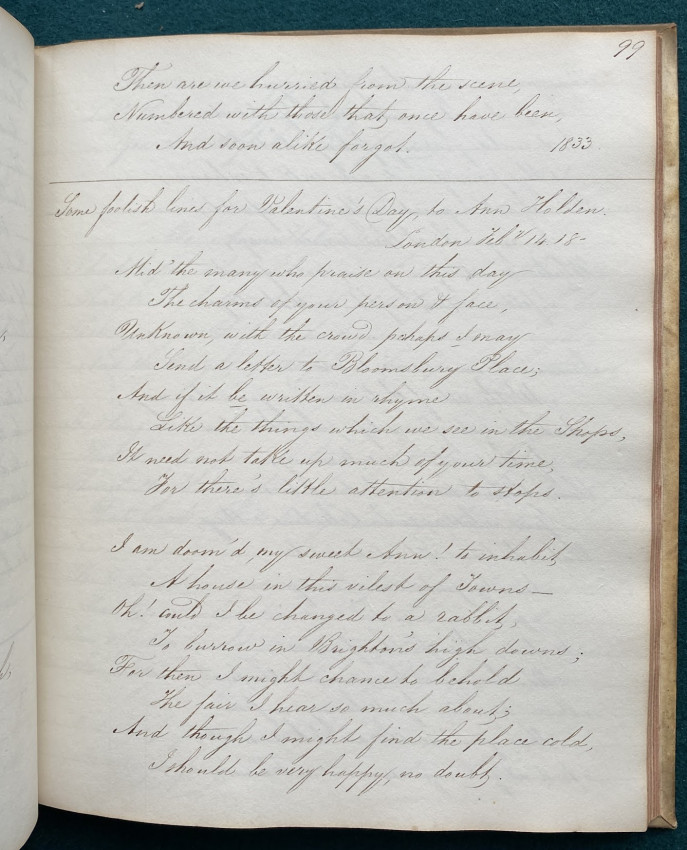 99
Then are we hurried from the scene,
Numbered with those that once have been,
And soon alike forgot. 1833.
Some foolish lines for Valentine's Day, to Ann Holden.
London Feb.y 14. 18-
Mid' the many who praise on this day
The charms of your person & face,
Unknown, with the crowd perhaps I may
Send a letter to Bloomsbury Place;
And if it be written in rhyme
Like the things which we see in the Shops,
It need not take up much of your time,
For there's little attention to stops.
I am doom'd, my sweet Ann! to inhabit
A house in this vilest of Towns—
Oh! could I be changed to a rabbit,
To burrow in Brighton's high downs;
For then I might chance to behold
The fair I hear so much about;
And though I might find the place cold,
I should be very happy, no doubt.